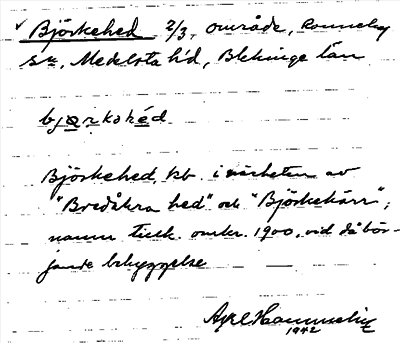 Björkehed 2/3, område, Ronneby
sn, Medelsta hd, Blekinge län
bjørkohéd
Björkehed, kb. i närheten av
"Bredåkra hed" och "Björkekärr";
namn tillk. omkr. 1900, vid då bör-
jande bebyggelse
Axel
1942